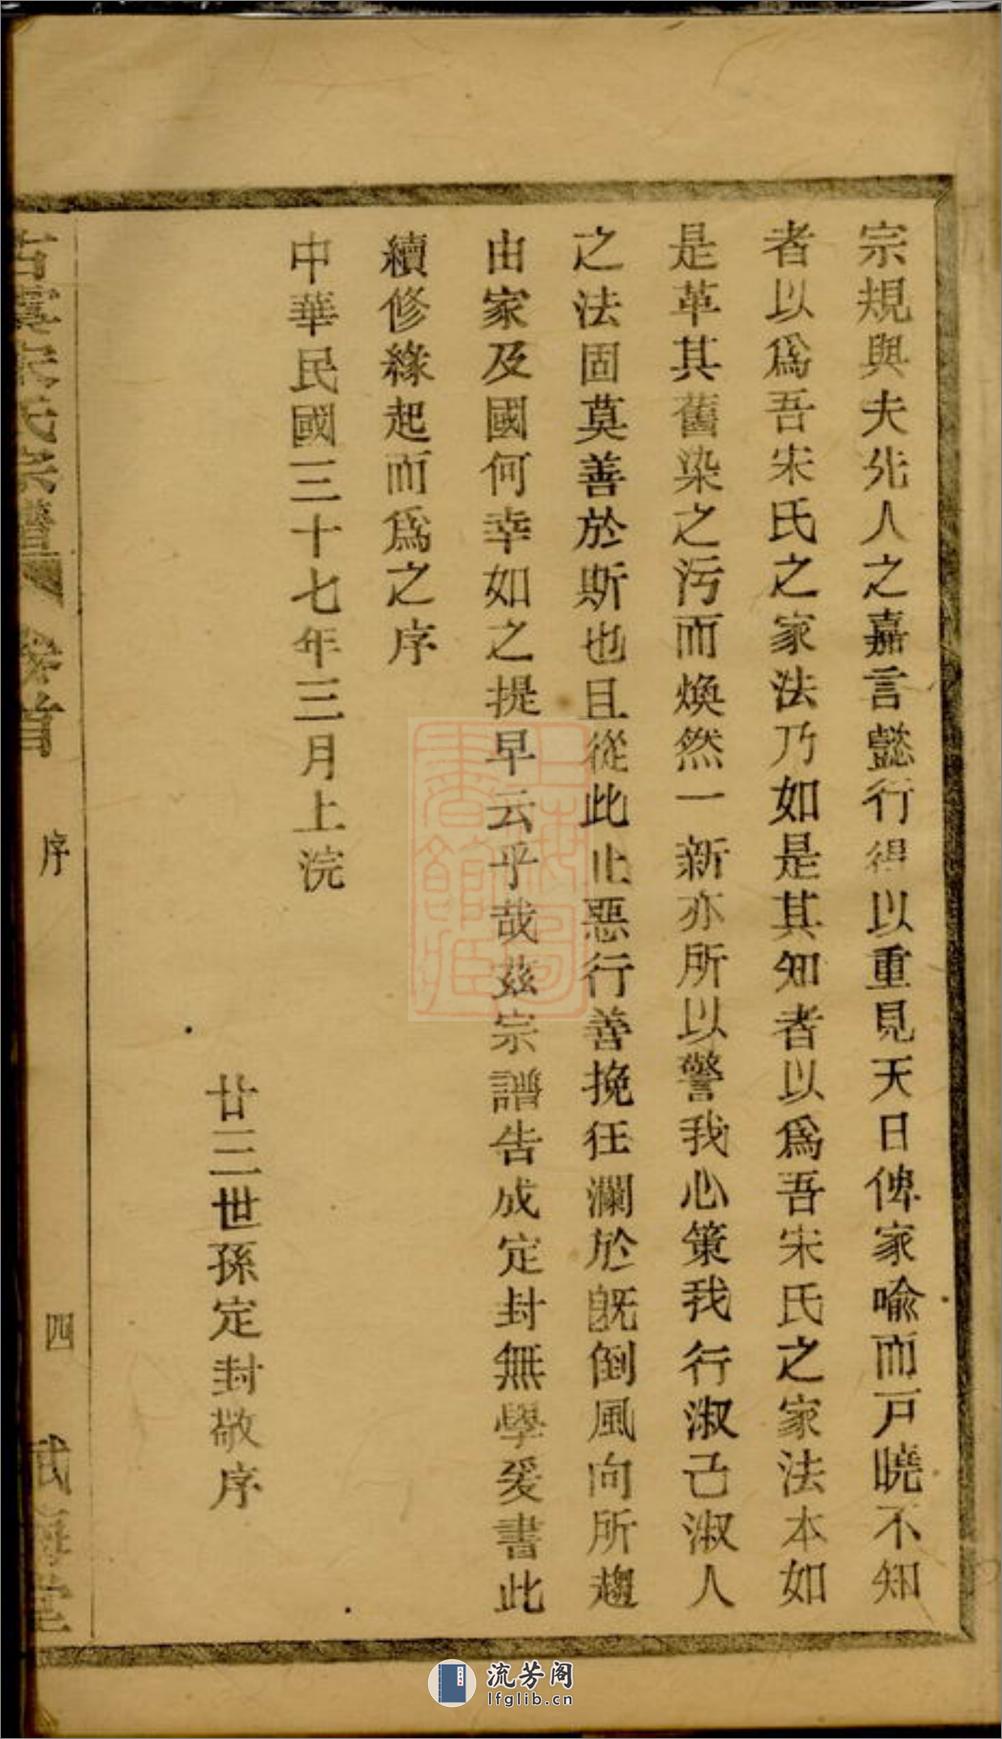 宗規與夫先人之嘉言懿行得以重見天日俾家喻而戶曉不知
者以爲吾宋氏之家法乃如是其知者以爲吾宋氏之家法本如
是革其舊染之污而煥然一新亦所以警我心策我行淑己淑人
之法固莫善於斯也且從此止惡行善挽狂瀾於既倒風向所趨
由家及國何幸如之提早云乎哉茲宗譜告成定封無學爰書此
續修緣起而爲之序
中華民國三十七年三月上浣
廿三世孫定封敬序
古虞宋氏宗譜 卷首 序 四
流芳阁
lfglib.cn